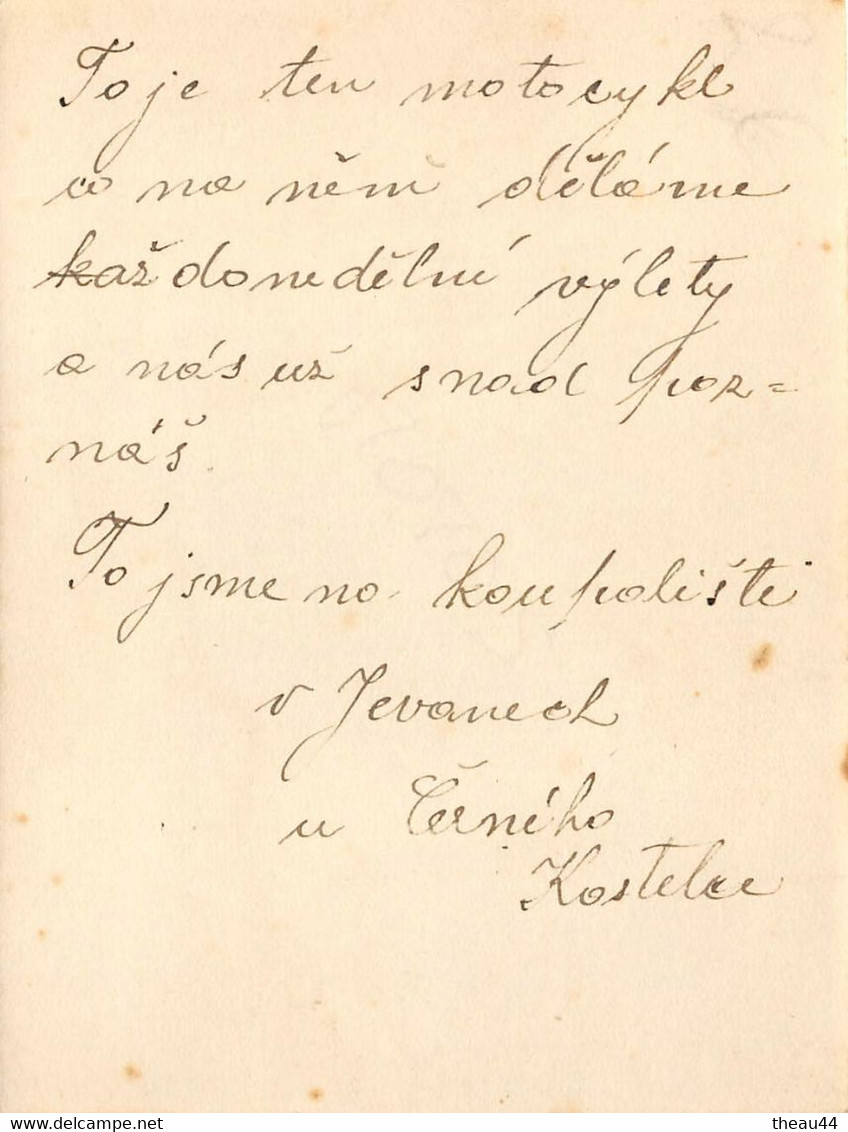 To je ten motocykl
co na něm děláme
každonedělní výlety
a nás už snad poz=
náš.
To jsme na koupališti
v Jevanech
u Černého
Kostelce
theau44